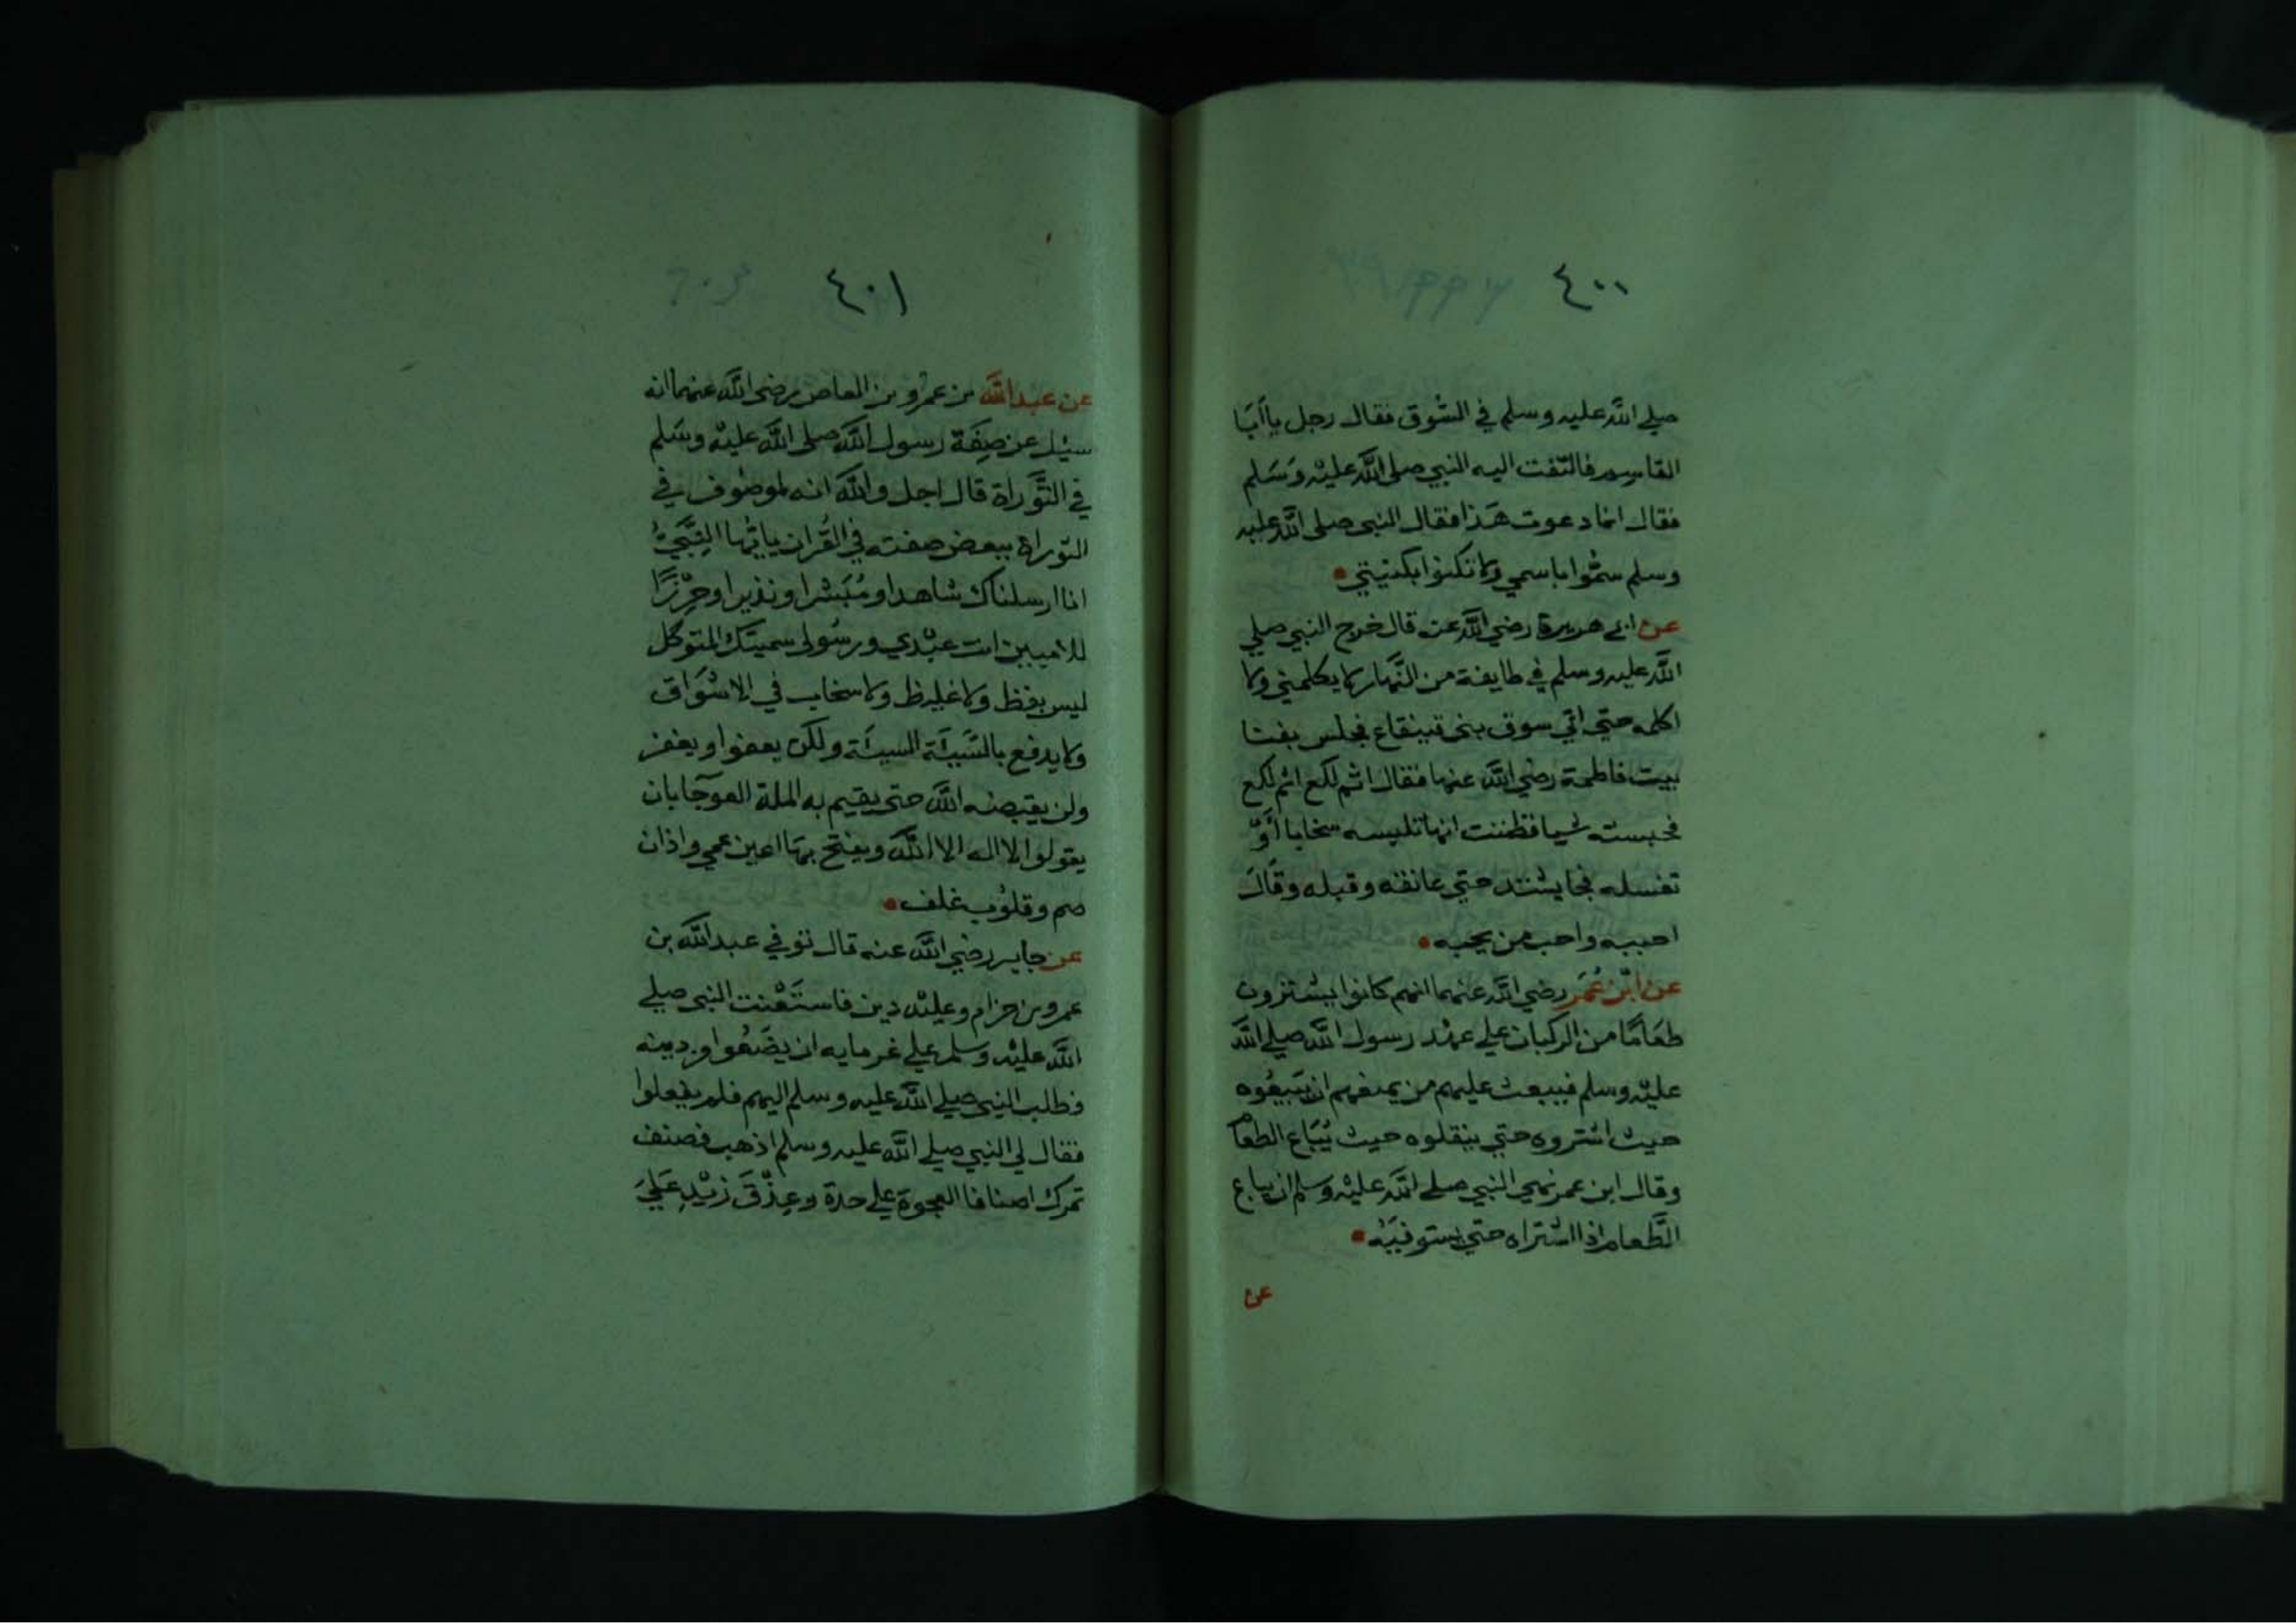 ٤٠٠
صلي الله عليه وسلم في السُّوق فقال رجل يا أبَا
القاسم فالتفت اليه النبي صلى اللَّه عليْه وَسَلم
فقال انما دعوت هَذا فقال النبي صلى اللَّه عليه
وسلم سمُّوا باسمي ولا تكنوا بكنيتي
عن ابي هريرة رضي اللَّه عنه قال خرج النبي صلي
اللَّه عليه وسلم في طايفة من النَّهار لا يكلمني ولا
اكلمه حتي اتي سوق بني قينقاع فجلس بفنا
بيت فاطمة رضي اللَّه عنها فقال اثم لكع اثم لكع
فحبسته شيا فظننت انها تلبسه سخابا أوْ
تغسله فجا يشتد حتي عانقه وقبله وقَالَ
احببه واحب من يحبه
عن ابْن عُمَر رضي اللَّه عنهما انهم كانوا يشترون
طعَامًا من الركبان علي عهْد رسول اللَّه صلي اللَّه
عليْه وسلم فيبعث عليهم من يمنعهم ان يَبيعُوه
حيث اشتروه حتي ينقلوه حيث يُبَاع الطعَام
وقال ابن عمر نهي النبي صلي اللَّه عليْه وسلم ان يباع
الطَّعام اذا اشتراه حتي يستوفيَه
عن
٤٠١
عن عبد اللَّه بن عمْرو بن العاص رضي اللَّه عنهما انه
سئل عن صِفَة رسول اللَّه صلى اللَّه عليْه وسَلم
في التَّوراة قال اجل واللَّه انه لموصُوف في
التوراة ببعض صفته في القُران يا ايّها النَّبيُّ
انا ارسلناك شاهدا ومُبَشرا ونذيرا وحِرْزًا
للاميين انت عبْدي ورسُولي سميتك المتوكل
ليس بفظ ولا غليظ ولا سخاب في الاسْوَاق
ولا يدفع بالسَّيئَة السيئَة ولكن يعفوا ويغفر
ولن يقبضه اللَّه حتي يقيم به الملة العوجآ بان
يقولوا لا اله الا اللَّه ويفتح بهَا اعين عمي واذان
صم وقلوُب غلف
عن جابر رضي اللَّه عنه قال توفي عبد اللَّه بن
عمرو بن حزام وعليْه دين فاستَعَنت النبي صلي
اللَّه عليْه وسلم علي غرمايه ان يضَعُوا من دينه
فطلب النبي صلي اللَّه عليه وسلم اليهم فلم يفعلوا
فقال لي النبي صلي اللَّه عليه وسلم اذهب فصنف
تمرك اصنافا العجوة علي حدة وعِذْقَ زيْدٍ عَلَيَ